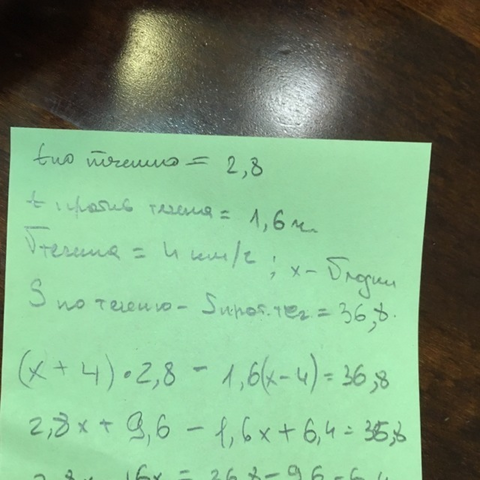 t по течению = 2,8
t против течения = 1,6 ч.
V течения = 4 км/г ; x – V лодки
S по течению – S прот. теч = 36,8.
(x + 4) • 2,8 – 1,6(x – 4) = 36,8
2,8x + 9,6 – 1,6x + 6,4 = 36,8
2,8x – 1,6x = 36,8 – 9,6 – 6,4